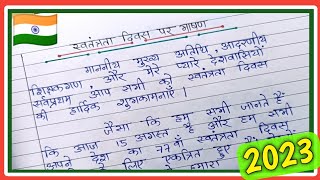 स्वतंत्रता दिवस पर भाषण
माननीय मुख्य अतिथि, आदरणीय
शिक्षकगण, और मेरे प्यारे देशवासियों
सर्वप्रथम आप सभी को स्वतंत्रता दिवस
की हार्दिक शुभकामनाएँ।
जैसा कि हम सभी जानते हैं
कि आज 15 अगस्त है और हम सभी
अपने देश का 77वाँ स्वतंत्रता दिवस
के लिए एकत्रित हुए
2023